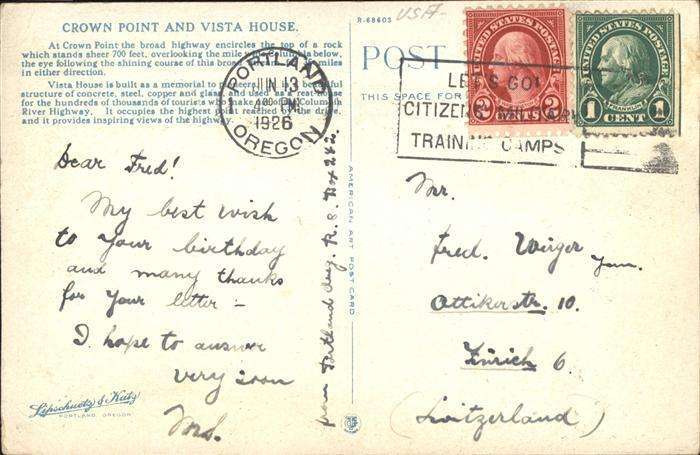 CROWN POINT AND VISTA HOUSE.
At Crown Point the broad highway encircles the top of a rock
which stands sheer 700 feet, overlooking the mile wide Columbia below,
the eye following the shining course of this broad miles
in either direction.
Vista House is built as a memorial to
structure of concrete, steel, copper and glass and used as a rest house
for the hundreds of thousands of tourists who make Columbia
River Highway. It occupies the highest point reached by the drive,
and it provides inspiring views of the highway.
R-68603
USA
POST
THIS SPACE FOR
PORTLAND
1
JUN 13
4 PM
1926
OREGON
LET'S GO!
CITIZENS
TRAINING CAMPS
UNITED STATES POSTAGE
2 CENTS 2
UNITED STATES POSTAGE
FRANKLIN
1 CENT 1
Dear Fred!
My best wish
to your birthday
and many thanks
for your letter –
I hope to answer
very soon
from Portland Oreg. R. 8. Box 242.
AMERICAN ART POST CARD
Mr.
Fred. Weiger jun.
Ottikerstr. 10.
Zürich 6.
(Switzerland)
Lipschuetz & Katz
PORTLAND, OREGON